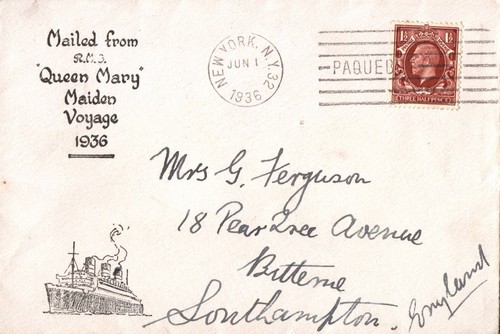 Mailed from
R.M.S.
"Queen Mary"
Maiden
Voyage
1936
NEW YORK, N.Y. 32
JUN 1
1936
PAQUEBO
1½ 1½
THREE HALFPENCE
Mrs G. Ferguson
18 Peartree Avenue
Bitterne
Southampton.
England